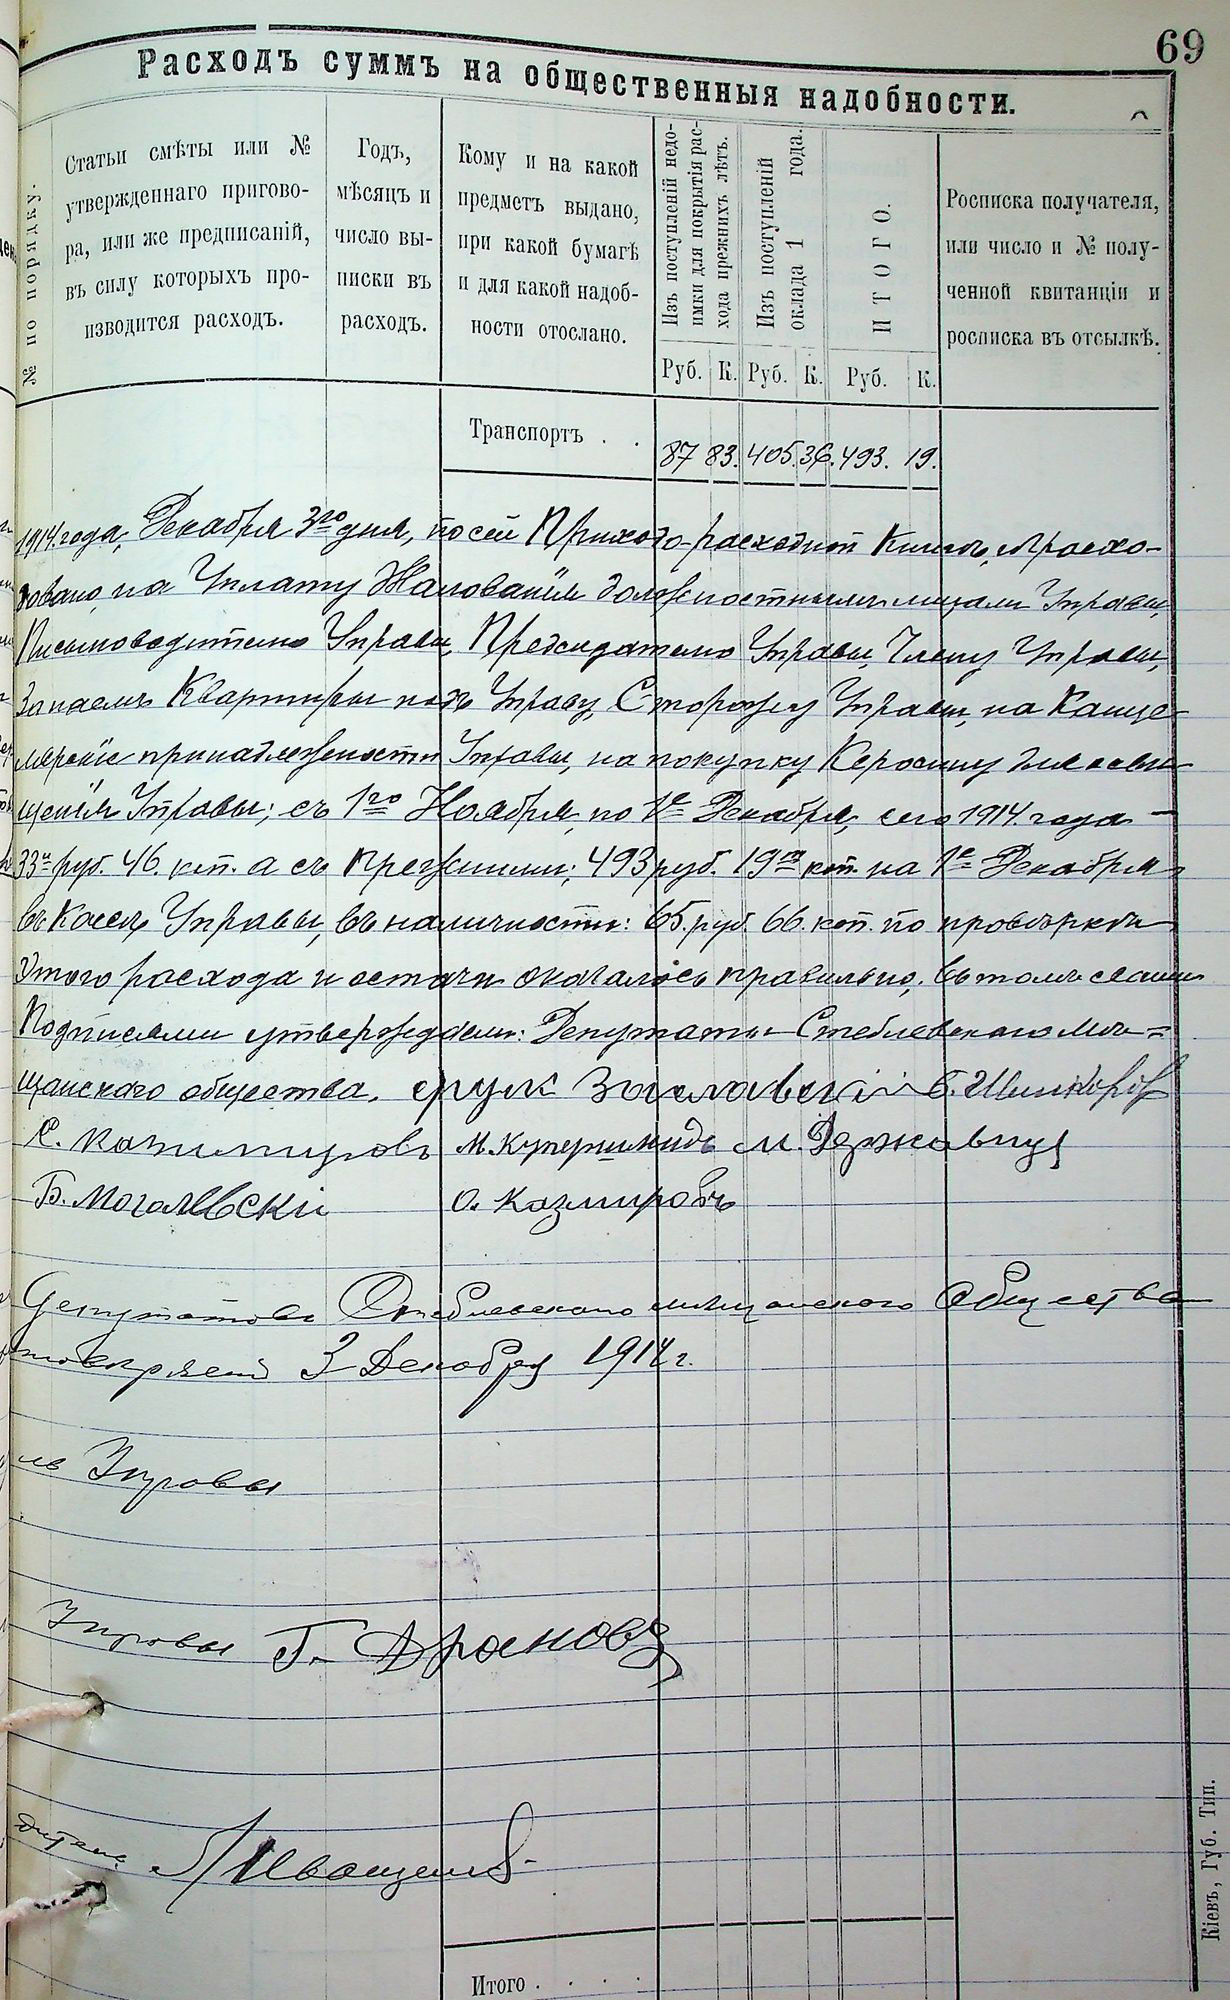 69
Расходъ суммъ на общественныя надобности.
№ по порядку.
Статьи смѣты или №
утвержденнаго пригово-
ра, или же предписаній,
въ силу которыхъ про-
изводится расходъ.
Годъ,
мѣсяцъ и
число вы-
писки въ
расходъ.
Кому и на какой
предметъ выдано,
при какой бумагѣ
и для какой надоб-
ности отослано.
Изъ поступленій недо-
имки для покрытія рас-
хода прежнихъ лѣтъ.
Изъ поступленій
оклада 1 года.
ИТОГО.
Росписка получателя,
или число и № полу-
ченной квитанціи и
росписка въ отсылкѣ.
Руб. К. Руб. К. Руб. К.
Транспортъ . . 87 83. 405. 36. 493. 19.
1914. года, Декабря 3го дня, по сей Приходо-расходной Книгѣ, израсхо-
довано, на Уплату Жалованія должностнымъ лицамъ Управы,
Письмоводителю Управы, Председателю Управы, Члену Управы,
За наемъ Квартиры подъ Управу, Сторожу Управы, на Канце-
лярскіе принадлежности Управы, на покупку Керосину для осве-
щенія Управы; съ 1го Ноября, по 1е Декабря, сего 1914. года —
33 руб. 46. коп. а съ прежними; 493 руб. 19 коп. на 1е Декабря
въ Кассѣ Управы, въ наличности: 65. руб. 66. коп. по провѣркѣ
Этого расхода и остачи оказалось правильно, въ томъ своими
Подписями утверждаемъ: Депутаты Стеблевскаго Мѣ=
щанскаго общества,
М. Купершмидъ М. Державец
Б. Могилевскі О. Казмировъ
Депутатовъ Стеблевскаго мѣщанскаго Общества
3 Декабря 1914 г.
Управы
Управы Г. Драновъ
Иващенко
Итого . . . .
Кіевъ, Губ. Тип.